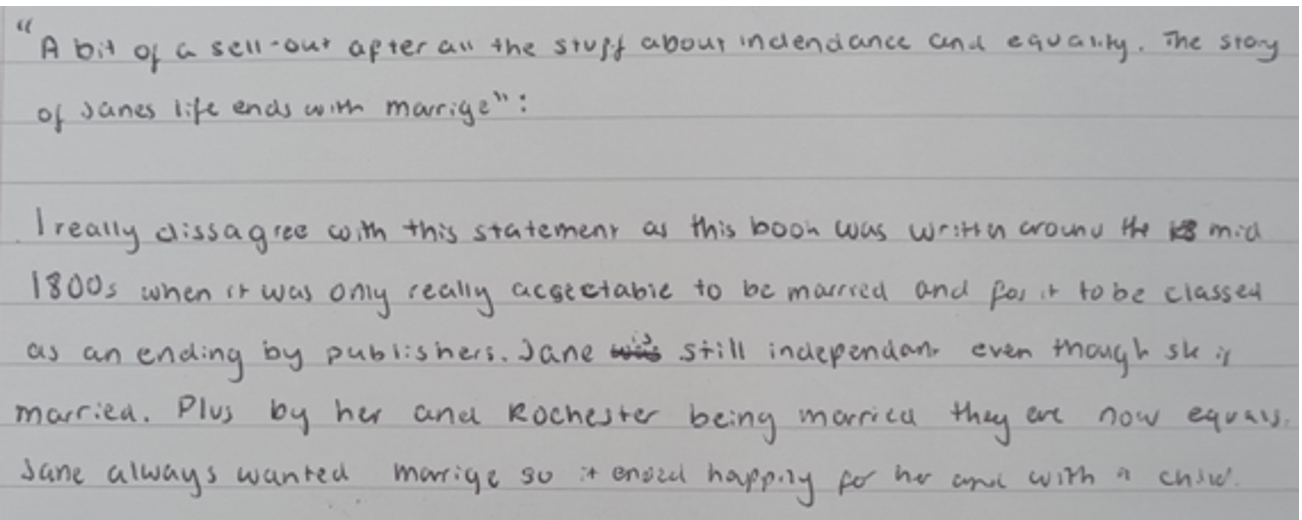 "A bit of a sell-out after all the stuff about indendance and equality. The story
of Janes life ends with marrige":
I really dissagree with this statement as this book was written around the mid
1800s when it was only really acsectable to be married and for it to be classed
as an ending by publishers. Jane is still independant even though she is
married. Plus by her and Rochester being married they are now equals.
Jane always wanted marrige so it ended happily for her and with a child.